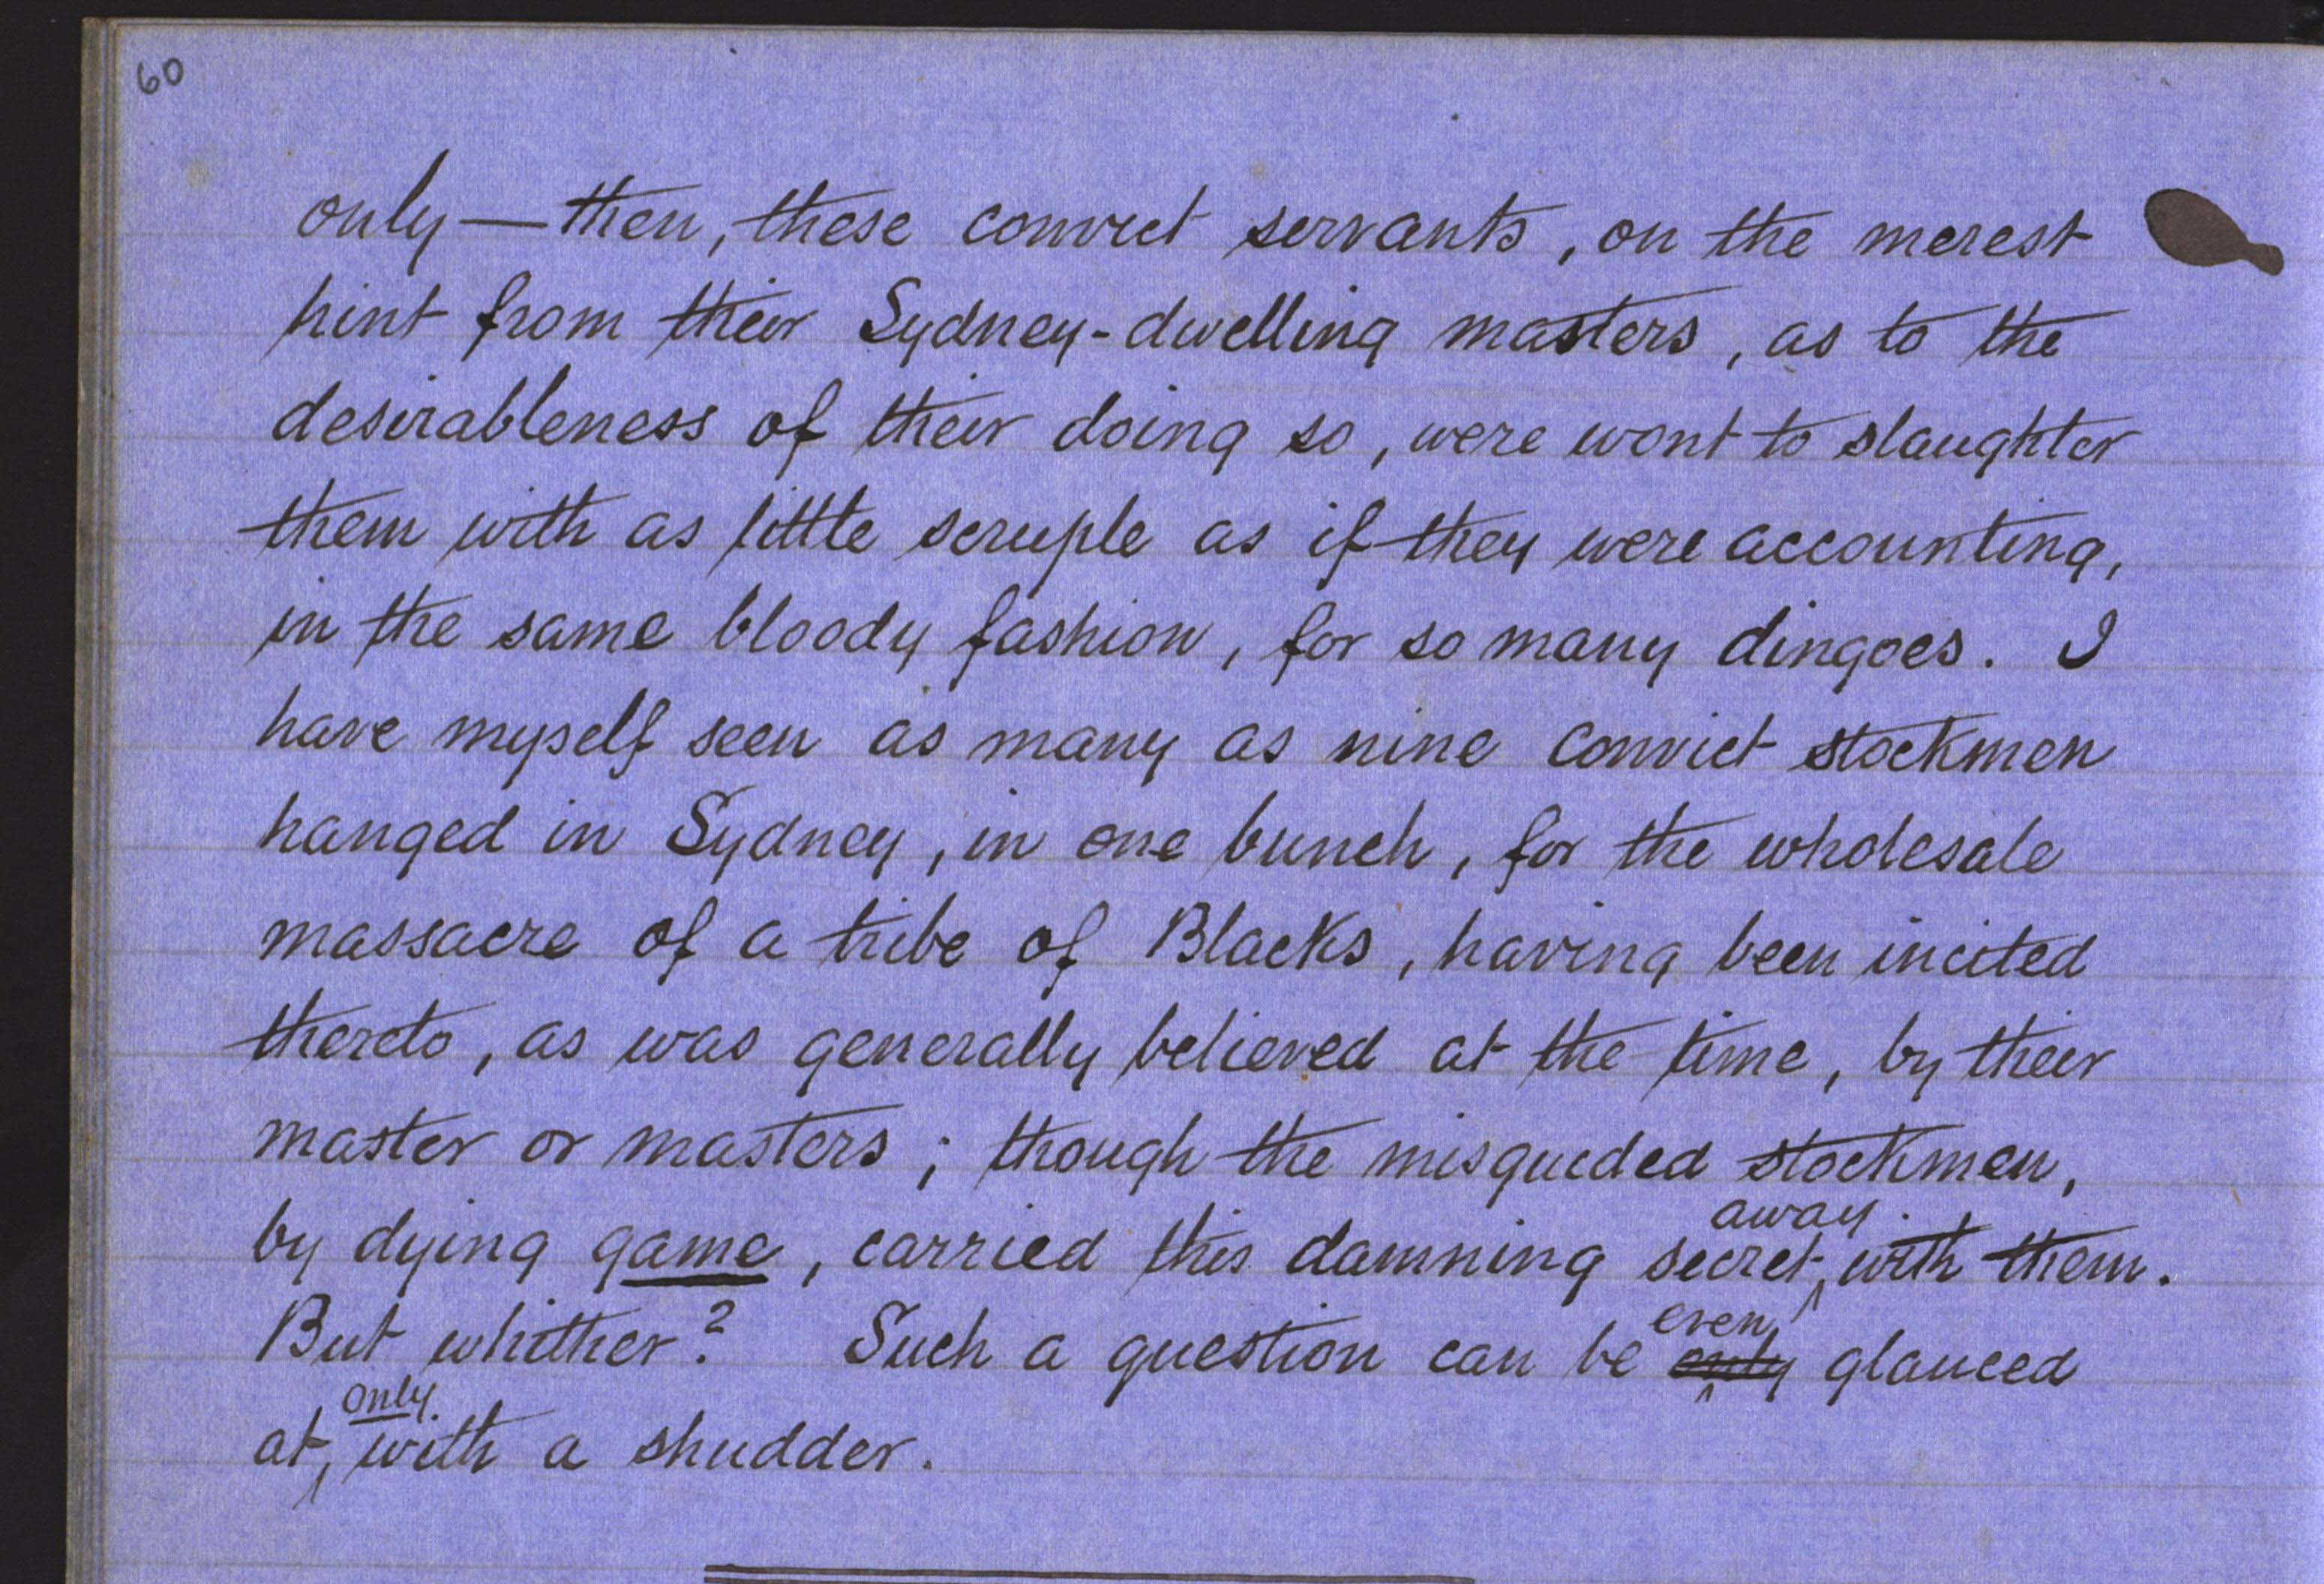 60
only — then, these convict servants, on the merest
hint from their Sydney-dwelling masters, as to the
desirableness of their doing so, were wont to slaughter
them with as little scruple as if they were accounting,
in the same bloody fashion, for so many dingoes. I
have myself seen as many as nine convict stockmen
hanged in Sydney, in one bunch, for the wholesale
massacre of a tribe of Blacks, having been incited
thereto, as was generally believed at the time, by their
master or masters; though the misguided stockmen,
away
by dying game, carried this damning secret, with them.
even
But whither? Such a question can be only glanced
only
at, with a shudder.